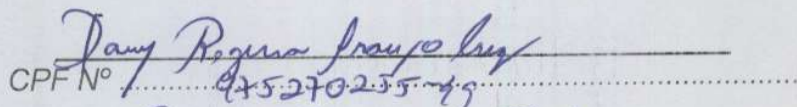 Dany Regina Araujo Cruz
CPF Nº 975270255-49